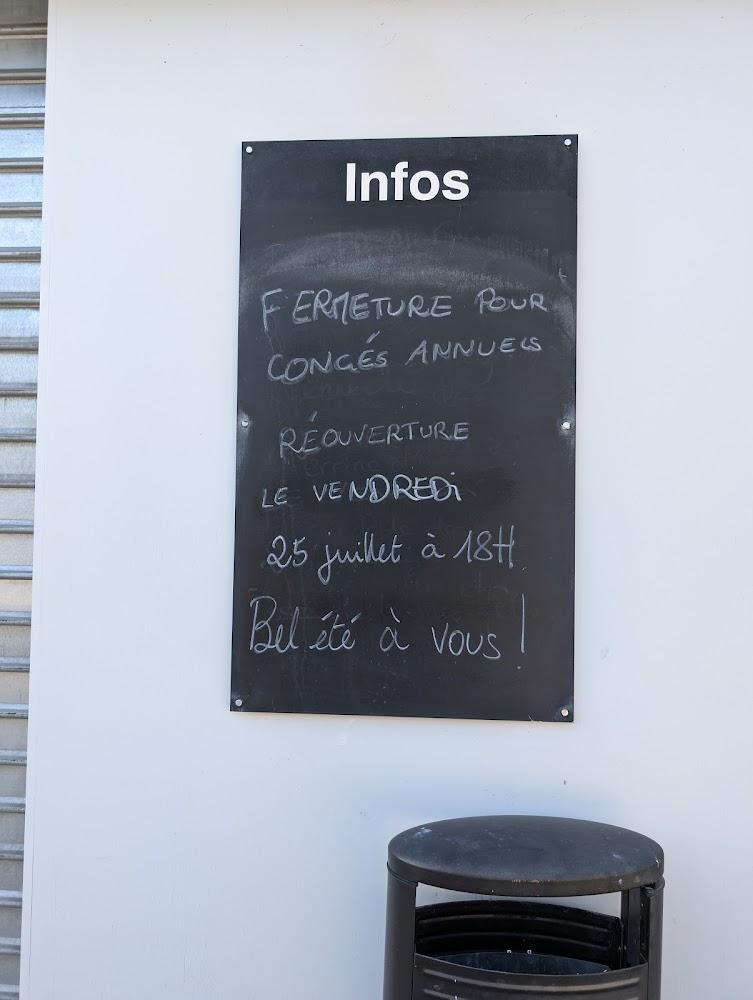 Infos
FERMETURE POUR
CONGÉS ANNUELS
RÉOUVERTURE
LE VENDREDi
25 juillet à 18H
Bel été à vous !